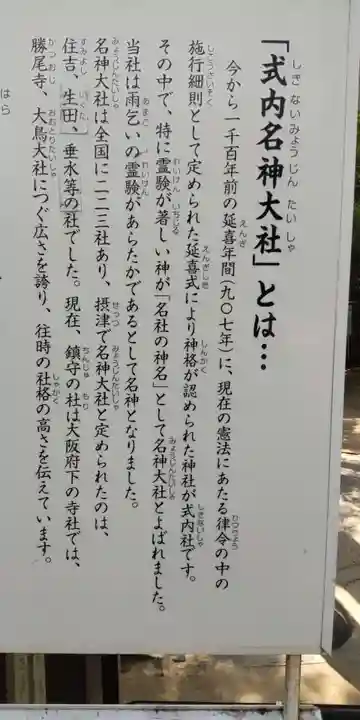 「式内名神大社」とは…
今から一千百年前の延喜年間(九〇七年)に、現在の憲法にあたる律令の中の
施行細則として定められた延喜式により神格が認められた神社が式内社です。
その中で、特に霊験が著しい神が「名社の神名」として名神大社とよばれました。
当社は雨乞いの霊験があらたかであるとして名神となりました。
名神大社は全国に二二三社あり、摂津で名神大社と定められたのは、
住吉、生田、垂水等の社でした。現在、鎮守の杜は大阪府下の寺社では、
勝尾寺、大鳥大社につぐ広さを誇り、往時の社格の高さを伝えています。
はら